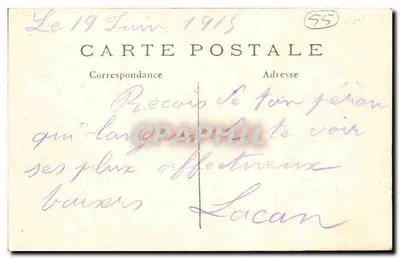 Le 19 Juin 1915
55
CARTE POSTALE
Correspondance Adresse
Recois de ton
qui de te voir
ses plus affectueux
baisers Lacan